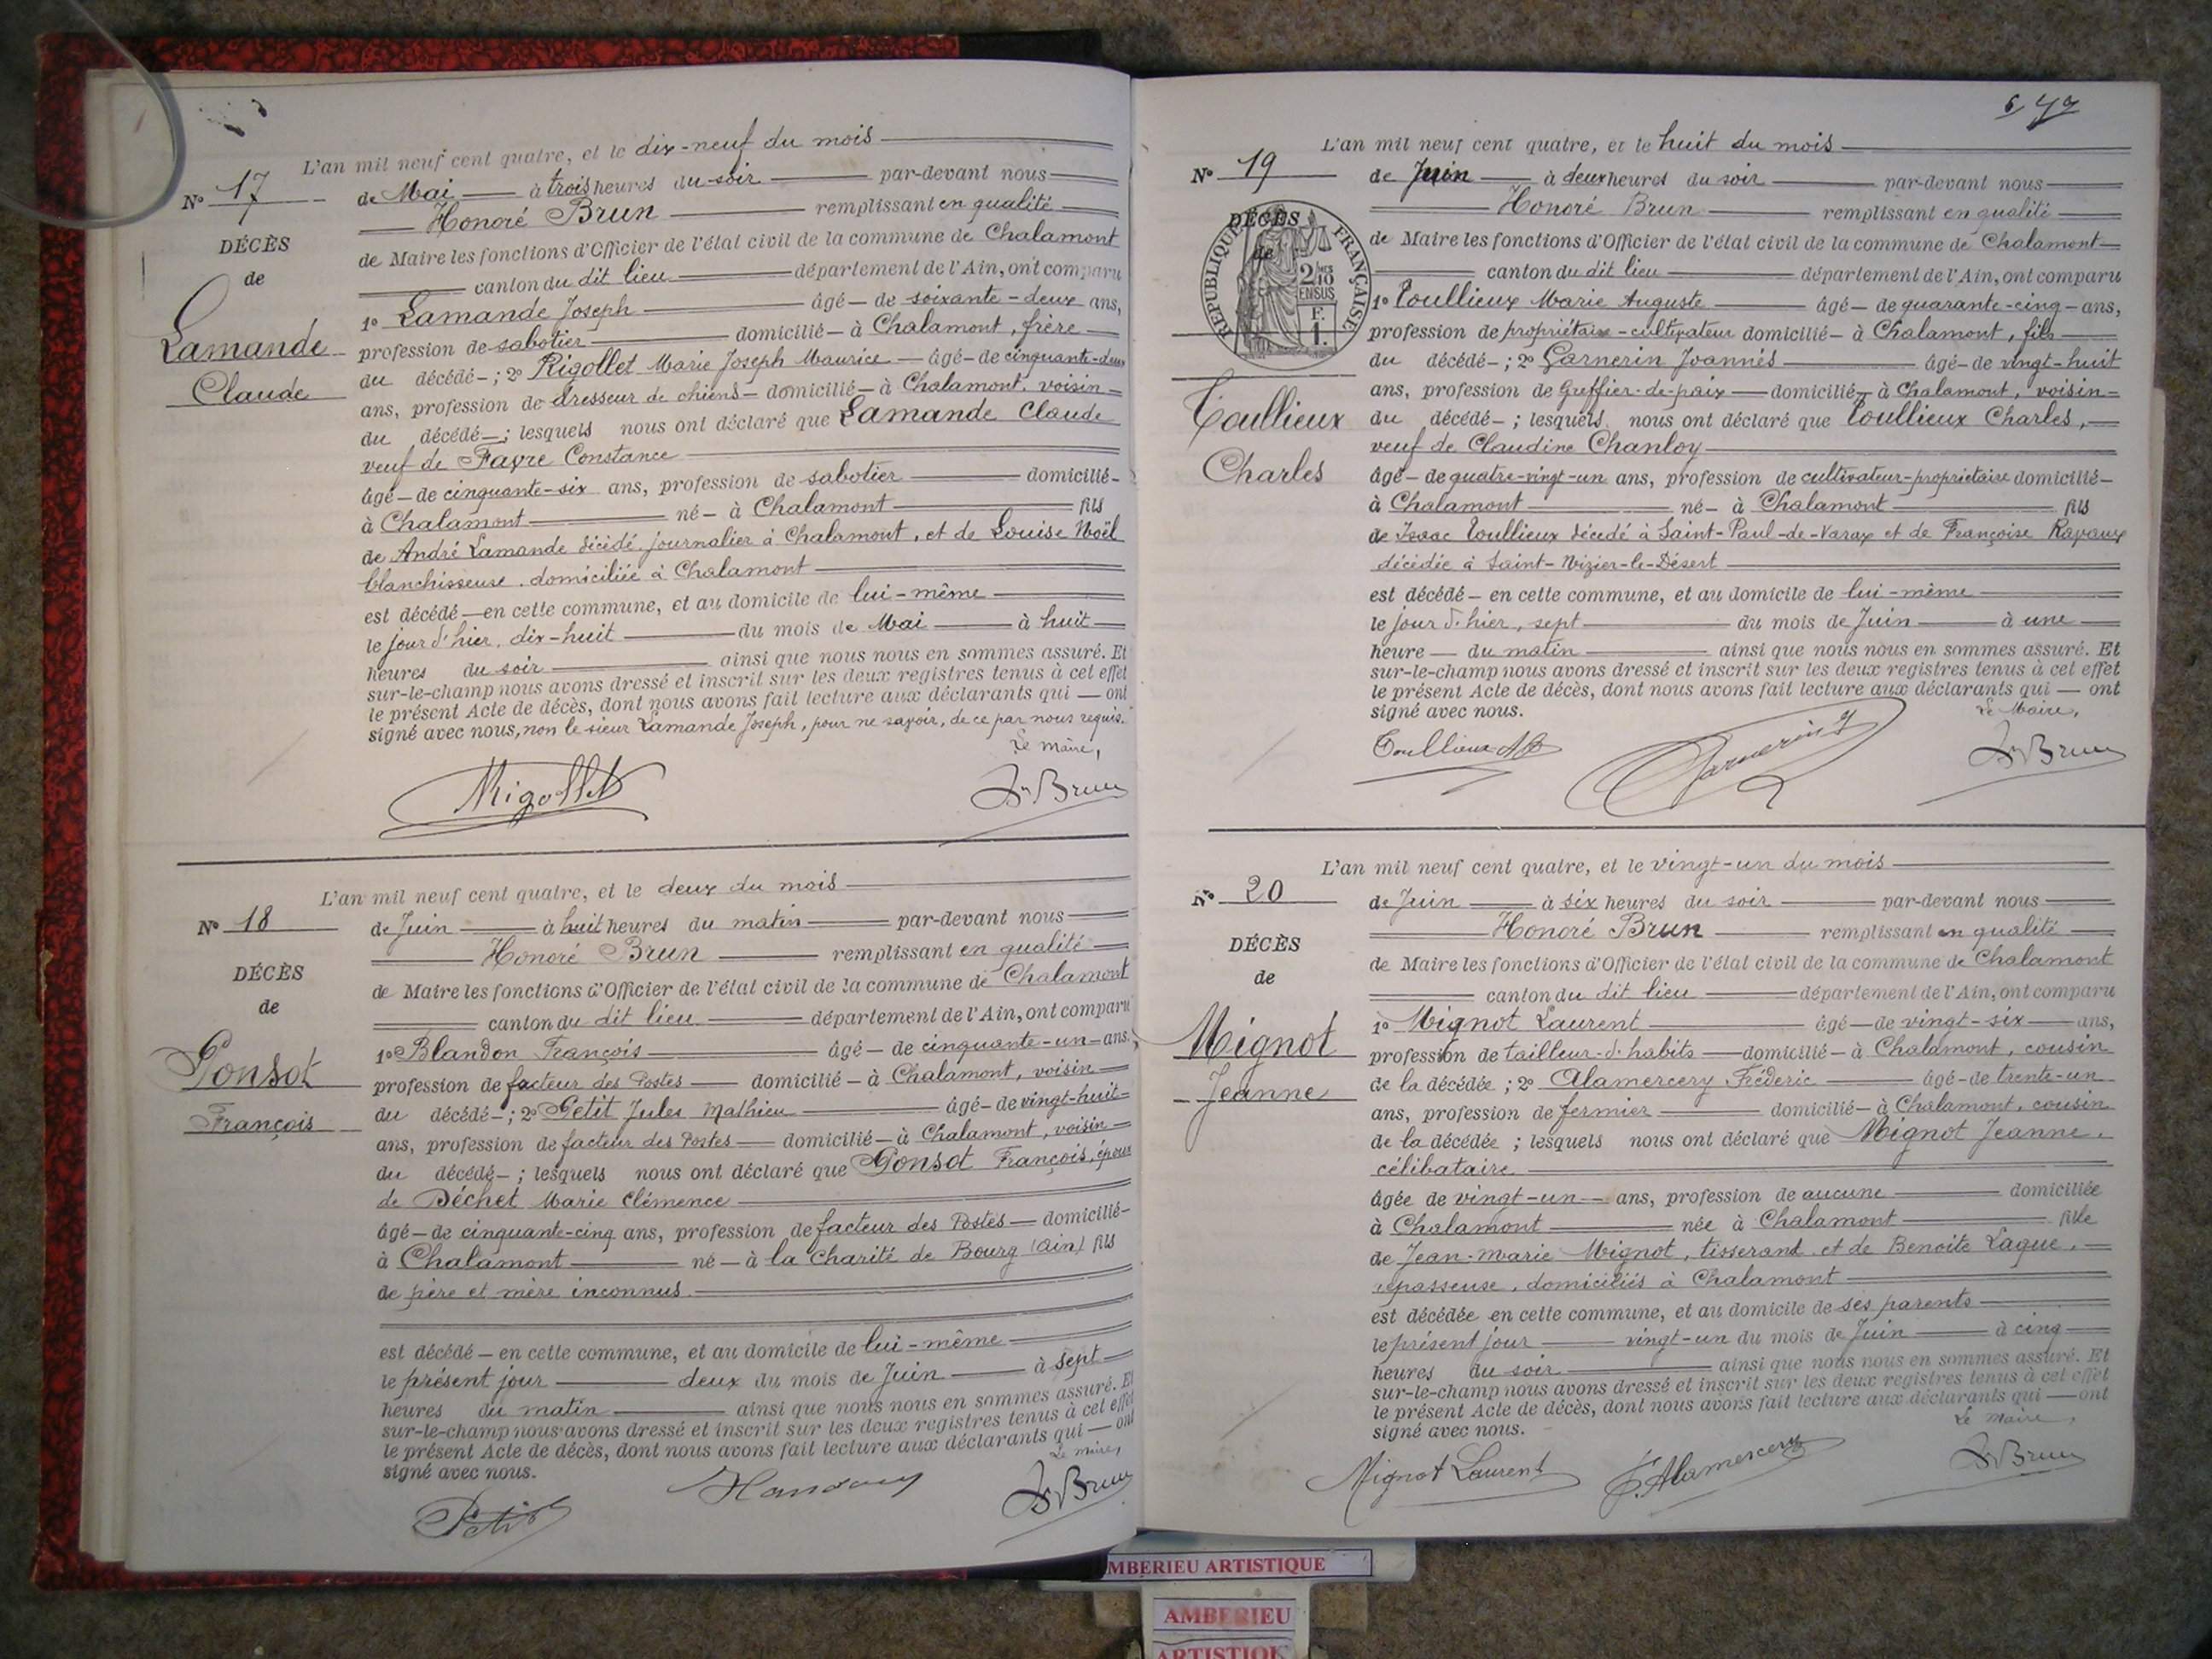 L'an mil neuf cent quatre, et le dix-neuf du mois
N° 17
de Mai à trois heures du soir par-devant nous
Honoré Brun remplissant en qualité
DÉCÈS
de Maire les fonctions d'Officier de l'état civil de la commune de Chalamont
de
canton du dit lieu département de l'Ain, ont comparu
1° Lamande Joseph âgé de soixante-deux ans,
Lamande
profession de sabotier domicilié à Chalamont, frère
du décédé ; 2° Rigollet Marie Joseph Maurice âgé de cinquante-deux
Claude
ans, profession de dresseur de chiens domicilié à Chalamont, voisin
du décédé ; lesquels nous ont déclaré que Lamande Claude
veuf de Favre Constance
âgé de cinquante-six ans, profession de sabotier domicilié
à Chalamont né à Chalamont fils
de André Lamande décédé journalier à Chalamont, et de Louise Noël
blanchisseuse, domiciliée à Chalamont
est décédé en cette commune, et au domicile de lui-même
le jour d'hier, dix-huit du mois de Mai à huit
heures du soir ainsi que nous nous en sommes assuré. Et
sur-le-champ nous avons dressé et inscrit sur les deux registres tenus à cet effet
le présent Acte de décès, dont nous avons fait lecture aux déclarants qui ont
signé avec nous, non le sieur Lamande Joseph, pour ne savoir, de ce par nous requis.
Le maire,
MRigollet
Hré Brun
L'an mil neuf cent quatre, et le deux du mois
N° 18
de Juin à huit heures du matin par-devant nous
Honoré Brun remplissant en qualité
DÉCÈS
de Maire les fonctions d'Officier de l'état civil de la commune de Chalamont
de
canton du dit lieu département de l'Ain, ont comparu
1° Blandon François âgé de cinquante-un ans,
Ponsot
profession de facteur des Postes domicilié à Chalamont, voisin
François
du décédé ; 2° Petit Jules Mathieu âgé de vingt-huit
ans, profession de facteur des Postes domicilié à Chalamont, voisin
du décédé ; lesquels nous ont déclaré que Ponsot François, époux
de Déchet Marie Clémence
âgé de cinquante-cinq ans, profession de facteur des Postes domicilié
à Chalamont né à la Charité de Bourg (Ain) fils
de père et mère inconnus
est décédé en cette commune, et au domicile de lui-même
le présent jour deux du mois de Juin à sept
heures du matin ainsi que nous nous en sommes assuré. Et
sur-le-champ nous avons dressé et inscrit sur les deux registres tenus à cet effet
le présent Acte de décès, dont nous avons fait lecture aux déclarants qui ont
signé avec nous.
Le maire,
Petit
Hré Brun
L'an mil neuf cent quatre, et le huit du mois
N° 19
de Juin à deux heures du soir par-devant nous
Honoré Brun remplissant en qualité
DÉCÈS
de Maire les fonctions d'Officier de l'état civil de la commune de Chalamont
de
RÉPUBLIQUE FRANÇAISE
2/10 EN SUS
F. 1.
canton du dit lieu département de l'Ain, ont comparu
1° Toullieux Marie Auguste âgé de quarante-cinq ans,
profession de propriétaire-cultivateur domicilié à Chalamont, fils
du décédé ; 2° Garnerin Joannès âgé de vingt-huit
ans, profession de Greffier-de-paix domicilié à Chalamont, voisin
Toullieux
du décédé ; lesquels nous ont déclaré que Toullieux Charles,
veuf de Claudine Chanloy
Charles
âgé de quatre-vingt-un ans, profession de cultivateur-propriétaire domicilié
à Chalamont né à Chalamont fils
de Isaac Toullieux décédé à Saint-Paul-de-Varax et de Françoise Ravaux
décédée à Saint-Nizier-le-Désert
est décédé en cette commune, et au domicile de lui-même
le jour d'hier, sept du mois de Juin à une
heure du matin ainsi que nous nous en sommes assuré. Et
sur-le-champ nous avons dressé et inscrit sur les deux registres tenus à cet effet
le présent Acte de décès, dont nous avons fait lecture aux déclarants qui ont
signé avec nous.
Le Maire,
Toullieux
Garnerin J
Hré Brun
L'an mil neuf cent quatre, et le vingt-un du mois
N° 20
de Juin à six heures du soir par-devant nous
Honoré Brun remplissant en qualité
DÉCÈS
de Maire les fonctions d'Officier de l'état civil de la commune de Chalamont
de
canton du dit lieu département de l'Ain, ont comparu
1° Mignot Laurent âgé de vingt-six ans,
Mignot
profession de tailleur-d'habits domicilié à Chalamont, cousin
Jeanne
de la décédée ; 2° Alamercery Fréderic âgé de trente-un
ans, profession de fermier domicilié à Chalamont, cousin
de la décédée ; lesquels nous ont déclaré que Mignot Jeanne,
célibataire
âgée de vingt-un ans, profession de aucune domiciliée
à Chalamont née à Chalamont fille
de Jean-Marie Mignot, tisserand et de Benoite Laque,
repasseuse, domiciliés à Chalamont
est décédée en cette commune, et au domicile de ses parents
le présent jour vingt-un du mois de Juin à cinq
heures du soir ainsi que nous nous en sommes assuré. Et
sur-le-champ nous avons dressé et inscrit sur les deux registres tenus à cet effet
le présent Acte de décès, dont nous avons fait lecture aux déclarants qui ont
signé avec nous.
Le maire,
Mignot Laurent
F. Alamercery
Hré Brun
AMBERIEU ARTISTIQUE
AMBERIEU